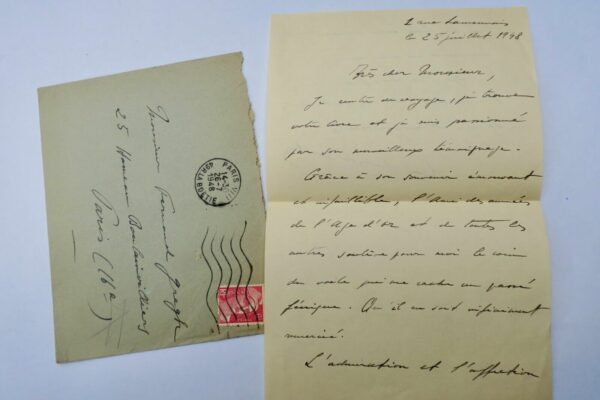 Monsieur Fernand Gregh
25 Hameau Boulainvilliers
Paris (16e)
PARIS VIII
26-7
1948
R. LA BOETIE
2 rue
le 25 juillet 1948
Très cher Monsieur,
Je rentre de voyage, je trouve
votre livre et je suis passionné
par son merveilleux témoignage.
Grâce à son souvenir émouvant
et infaillible, l'Ami des années
de l'Age d'Or et de toutes les
autres soulève pour moi le coin
du voile qui me cache un passé
féerique. Qu'il en soit infiniment
remercié.
L'admiration et l'affection